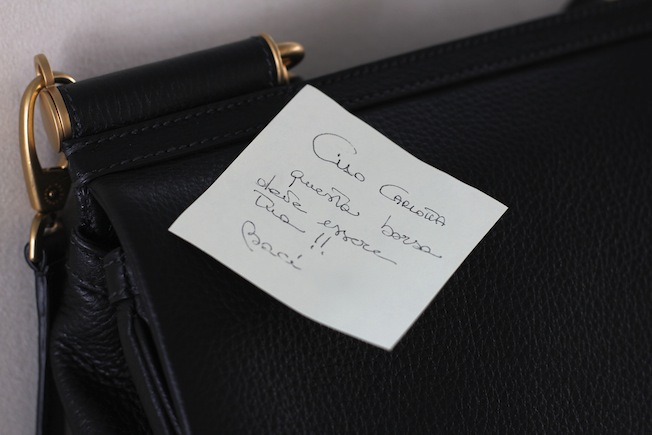 Ciao CARLOTTA
questa borsa
deve essere
tua!!
Baci